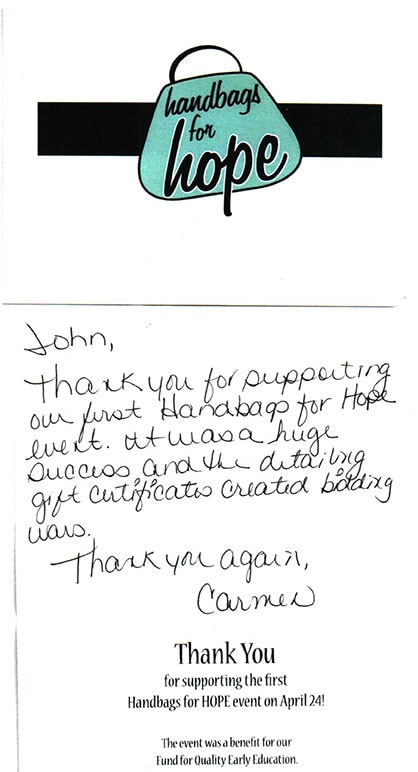 handbags
for
hope
John,
Thank you for supporting
our first Handbags for Hope
event. It was a huge
success and the detailing
gift certificates created bidding
wars.
Thank you again,
Carmen
Thank You
for supporting the first
Handbags for HOPE event on April 24!
The event was a benefit for our
Fund for Quality Early Education.